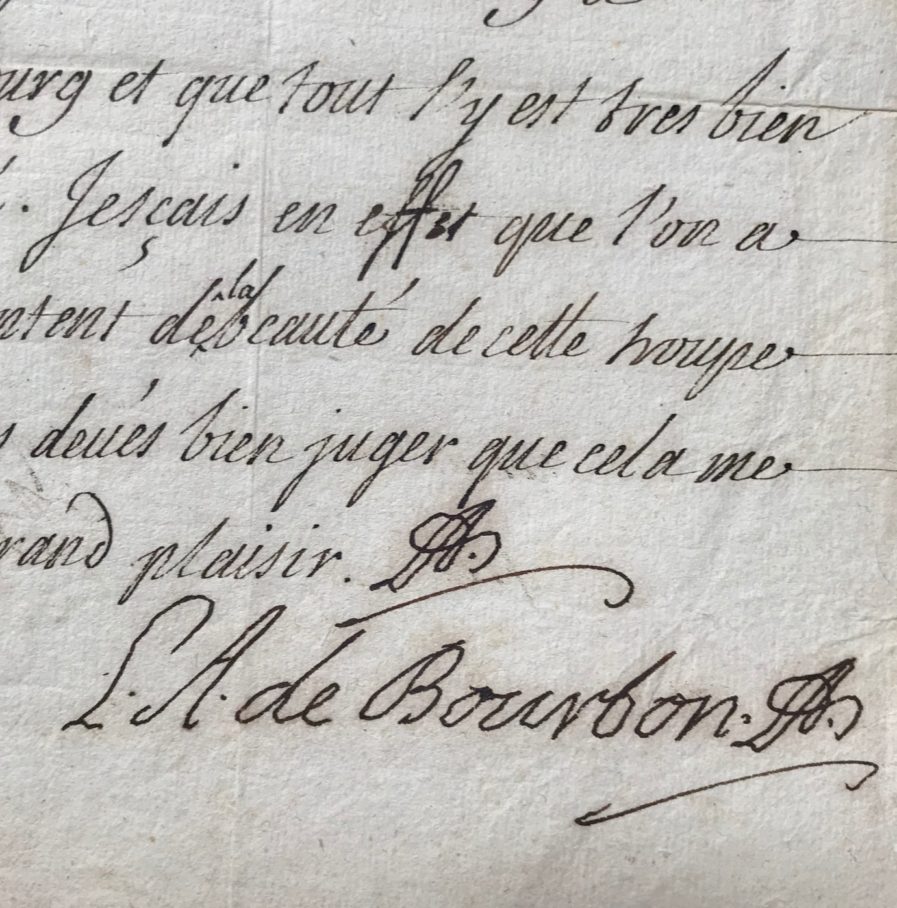 ourg et que tout s'y est tres bien
. Jesçais en effet que l'on a
ntent de la beauté de cette troupe
s devés bien juger que cela me
rand plaisir.
L. A. de Bourbon.